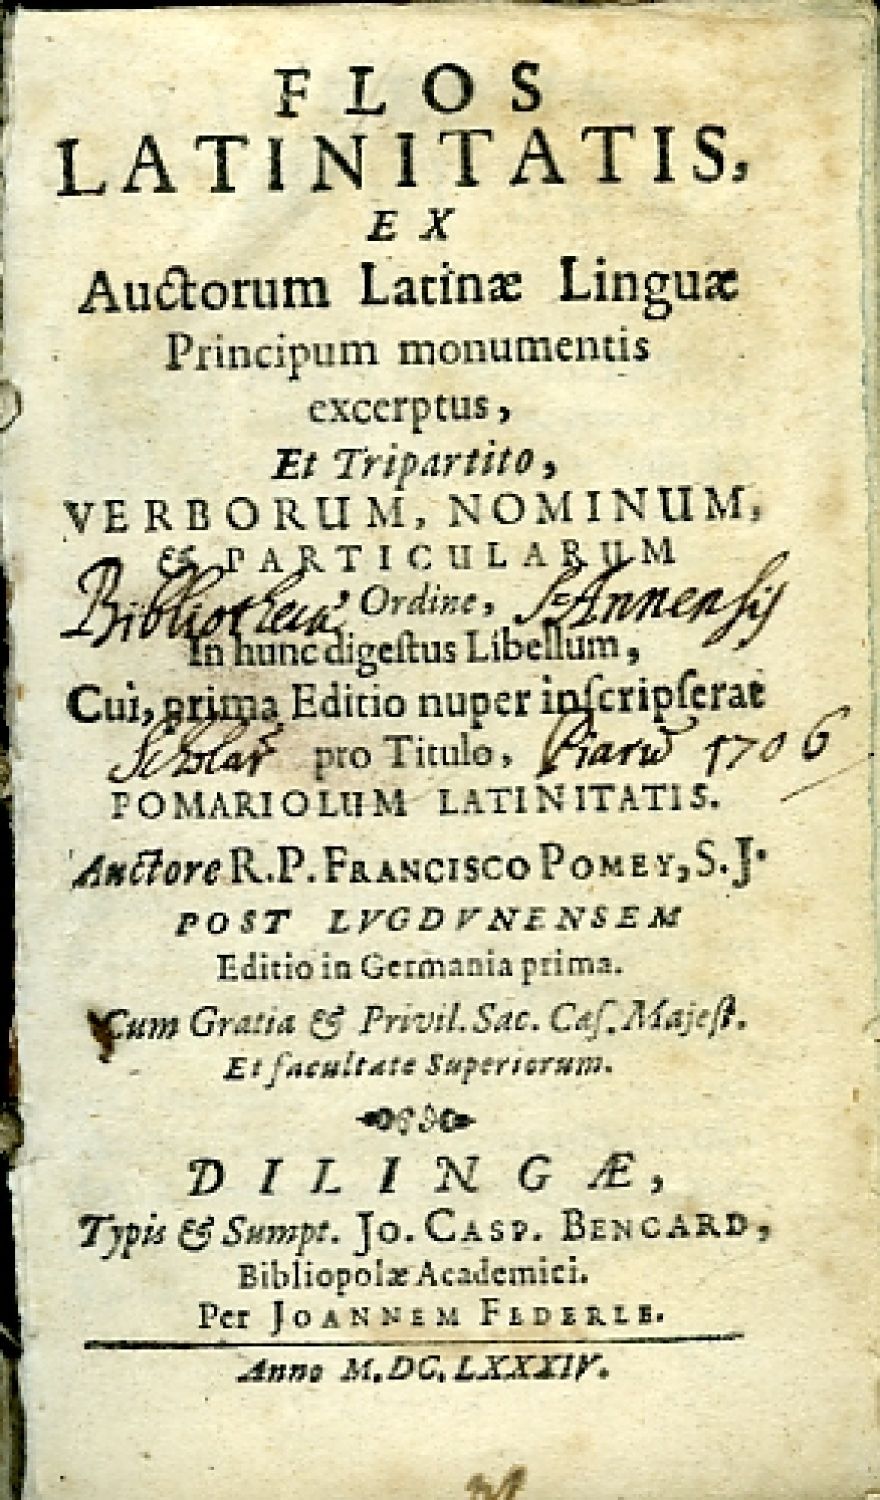 FLOS
LATINITATIS,
EX
Auctorum Latinæ Linguæ
Principum monumentis
excerptus,
Et Tripartito,
VERBORUM, NOMINUM,
& PARTICULARUM
Bibliotheca Ordine, S. Annensis
In hunc digeſtus Libellum,
Cui, prima Editio nuper inſcripſerat
Scholar pro Titulo, Piarū 1706
POMARIOLUM LATINITATIS.
Auctore R.P. FRANCISCO POMEY, S.J.
POST LVGDVNENSEM
Editio in Germania prima.
Cum Gratia & Privil. Sac. Cæſ. Majeſt.
Et facultate Superiorum.
DILINGÆ,
Typis & Sumpt. JO. CASP. BENCARD,
Bibliopolæ Academici.
Per JOANNEM FEDERLE.
Anno M.DC.LXXXIV.